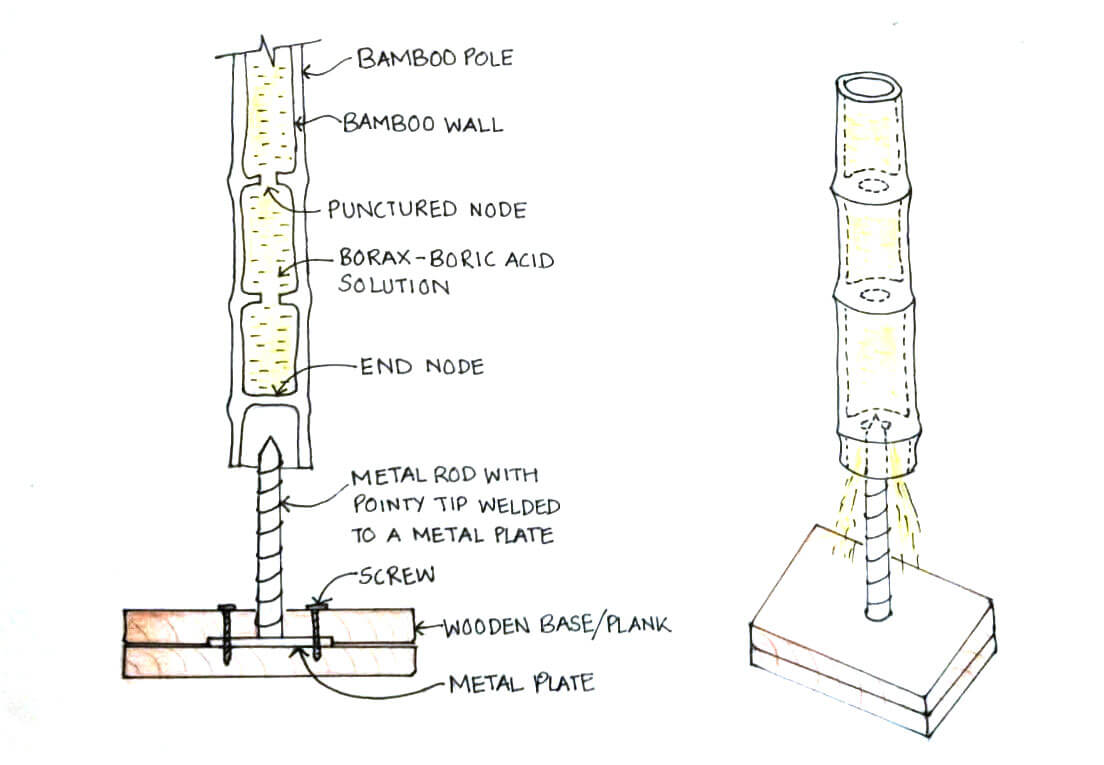 BAMBOO POLE
BAMBOO WALL
PUNCTURED NODE
BORAX-BORIC ACID
SOLUTION
END NODE
METAL ROD WITH
POINTY TIP WELDED
TO A METAL PLATE
SCREW
WOODEN BASE/PLANK
METAL PLATE